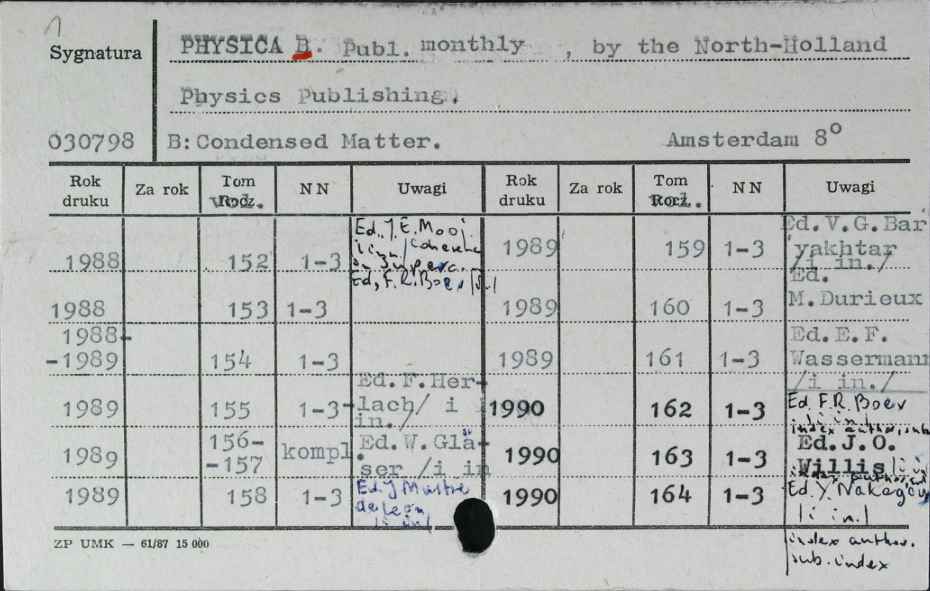 Sygnatura PHYSICA B. Publ. monthly , by the North-Holland
Physics Publishing.
030798 B: Condensed Matter. Amsterdam 8o
Rok druku Za rok Tom vol. NN Uwagi Rok druku Za rok Tom vol. NN Uwagi
1988 152 1-3 Ed. J.E. Mooj. on Superc. Ed, F.R. Boer 1989 159 1-3 Ed. V.G. Bar yakhtar /i in./
1988 153 1-3 1989 160 1-3 Ed. M. Durieux
1988-
-1989 154 1-3 1989 161 1-3 Ed. E.F. Wassermann /i in./
1989 155 1-3 Ed. F. Her-lach/ i in./ 1990 162 1-3 Ed F.R. Boer /i in./
1989 156-
-157 kompl. Ed. W. Glä-ser /i in 1990 163 1-3 Ed. J.O. Willis /i in
1989 158 1-3 Ed. J Mustre de Leon /i in/ 1990 164 1-3 Ed. Y. /i in./
ZP UMK — 61/87 15 000
index author.
sub. index